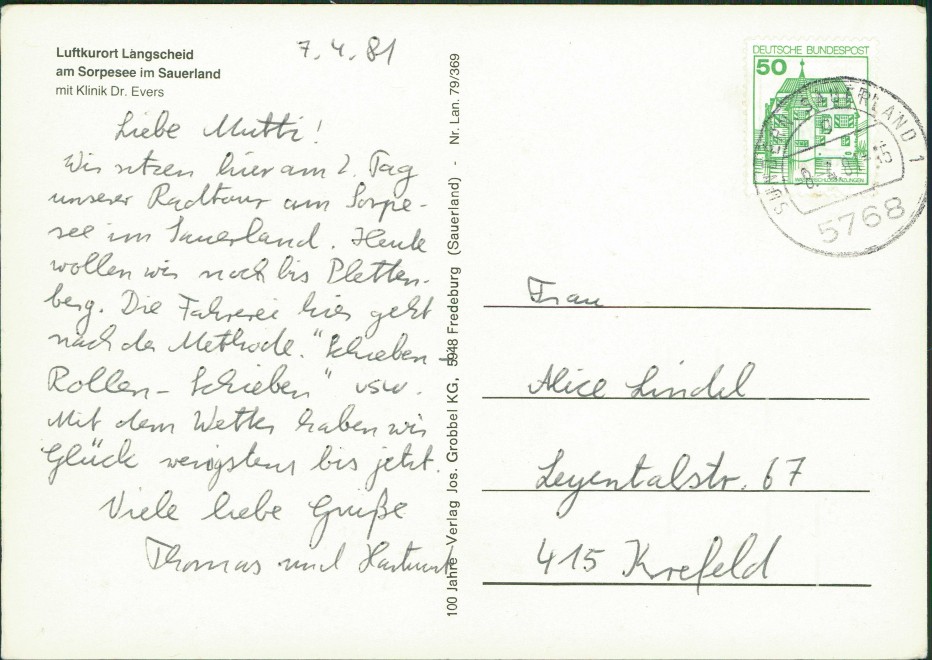 Luftkurort Langscheid
am Sorpesee im Sauerland
mit Klinik Dr. Evers
7.4.81
Liebe Mutti!
Wir sitzen hier am 2. Tag
unserer Radtour am Sorpe-
see im Sauerland. Heute
wollen wir noch bis Pletten-
berg. Die Fahrerei hier geht
nach der Methode "Schieben -
Rollen - Schieben" usw.
Mit dem Wetter haben wir
Glück wenigstens bis jetzt.
Viele liebe Grüße
Thomas und Hartmut
100 Jahre Verlag Jos. Grobbel KG, 5948 Fredeburg (Sauerland) - Nr. Lan. 79/369
DEUTSCHE BUNDESPOST
50
SUNDERN, SAUERLAND 1
5768
Frau
Alice Lindel
Leyentalstr. 67
415 Krefeld